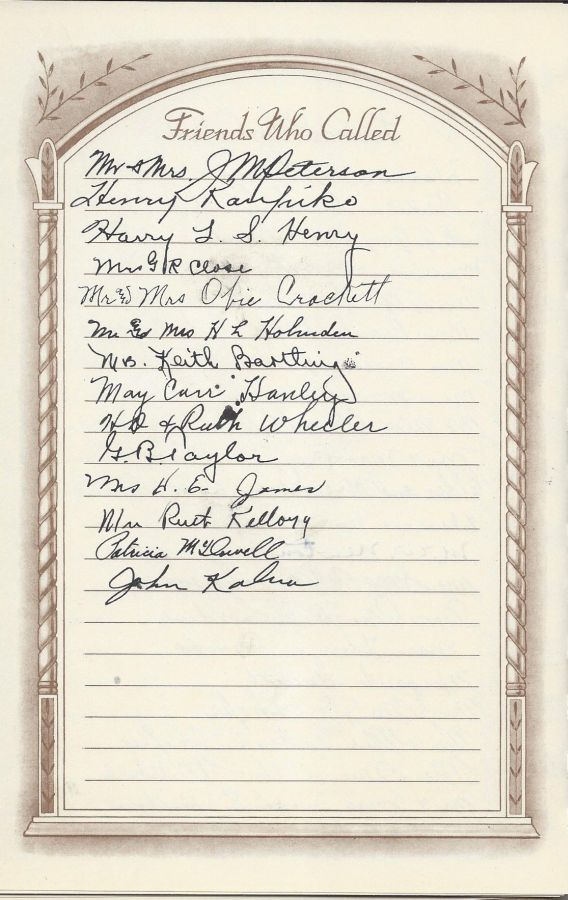 Friends Who Called
Mr & Mrs. J M Peterson
Henry Kaupiko
Harry L. S. Henry
Mrs G R Close
Mr & Mrs Obie Crockett
Mr & Mrs H L
Mrs. Keith
May Carr Hanley
H D & Ruth Wheeler
G. B. Taylor
Mrs H. E. James
Mrs Ruth Kellogg
Patricia McDowell
John